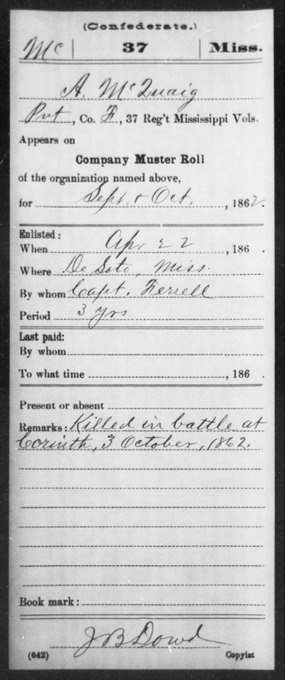 (Confederate.)
Mc | 37 | Miss.
A. McQuaig
Pvt, Co. F, 37 Reg't Mississippi Vols.
Appears on
Company Muster Roll
of the organization named above,
for Sept & Oct., 1862.
Enlisted:
When Apr 22, 186 .
Where De Soto, Miss.
By whom Capt. Ferrell
Period 3 yrs
Last paid:
By whom
To what time , 186 .
Present or absent
Remarks: Killed in battle at
Corinth, 3 October, 1862.
Book mark:
J B Dowd
(642) Copyist